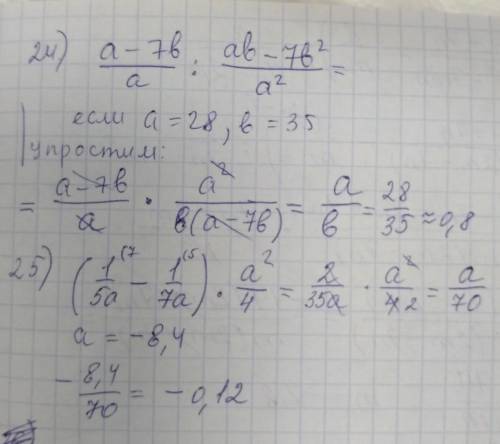 24) (a - 7b)/a : (ab - 7b²)/a² =
если a = 28, b = 35
упростим:
= (a - 7b)/a · a²/(b(a - 7b)) = a/b = 28/35 ≈ 0,8
25) (1/5a (7 - 1/7a (5) · a²/4 = 2/35a · a²/42 = a/70
a = -8,4
- 8,4/70 = -0,12